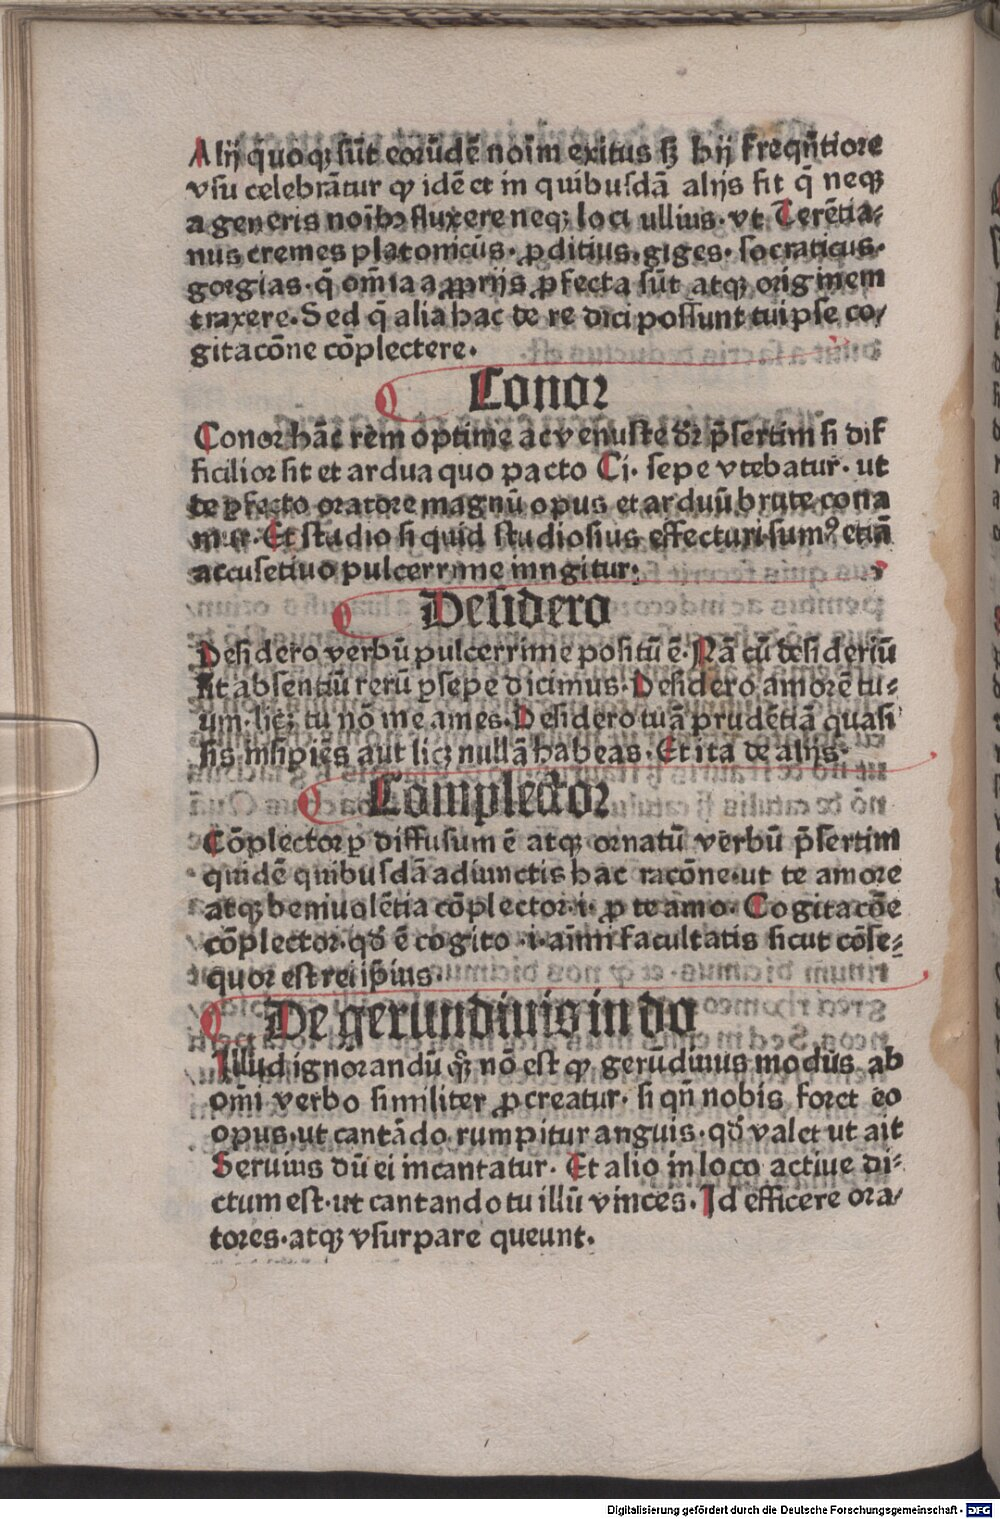 Alij q̄uoqꝫ sūt eorūdē noīm exitus sꝫ hij freqn̄tiore
vsu celebrātur ꝙ idē et in quibusdā alijs fit q̄ neqꝫ
a generis noībꝰ fluxere neqꝫ loci ullius· vt Terētia⸗
nus cremes platonicūs· ꝓditius· giges· socraticus·
gorgias· q̄ om̄ia a ꝓprijs ꝑfecta sūt atqꝫ originem
traxere· Sed q̄ alia hac de re dici possunt tuipse co⸗
gitacōne cōplectere·
Conor
Conor hāc rem optime ac venuste dr̄ p̄sertim si dif
ficilior sit et ardua quo pacto Ci· sepe vtebatur· ut
de ꝑfecto oratore magnū opus et arduū brute cona
mur· Et studio si quid studiosius effecturi sumꝰ etiā
accusetiuo pulcerrime iungitur:
Desidero
Desidero verbū pulcerrime positū ē· Nā cū desideriū
sit absentiū rerū ꝑsepe dicimus· Desidero amorē tu⸗
um· licꝫ tu nō me ames· Desidero tuā prudētiā quasi
sis insipiēs aut licꝫ nullā habeas· Et ita de alijs·
Complector
Cōplector ꝑ diffusum ē atqꝫ ornatū verbū p̄sertim
quidē quibusdā adiunctis hac racōne· ut te amore
atqꝫ beniuolētia cōplector· i· ꝓ te amo· Cogitacōe
cōplector· qḋ ē cogito ·i· aīmi facultatis sicut cōse⸗
quor est rei ip̄ius·
De gerundiuis in do
Illud ignorandū q̄ꝫ nō est ꝙ gerudiuus modus ab
om̄i verbo similiter ꝓcreatur· si qn̄ nobis foret eo
opus· ut cantādo rumpitur anguis· qḋ valet ut ait
Seruius dū ei incantatur· Et alio in loco actiue di⸗
ctum est· ut cantando tu illū vinces· Id efficere ora⸗
tores· atqꝫ vsurpare queunt·
Digitalisierung gefördert durch die Deutsche Forschungsgemeinschaft - DFG